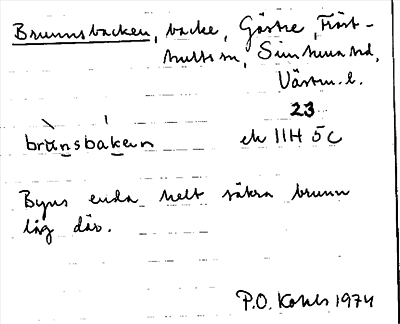 Brunnsbacken, backe, Gästre, Fröst-
hults sn, Simtuna hd,
Västm. l.
23
brùnsbáken ek 11H 5c
Byns enda helt säkra brunn
låg där.
P.O. Kohls 1974